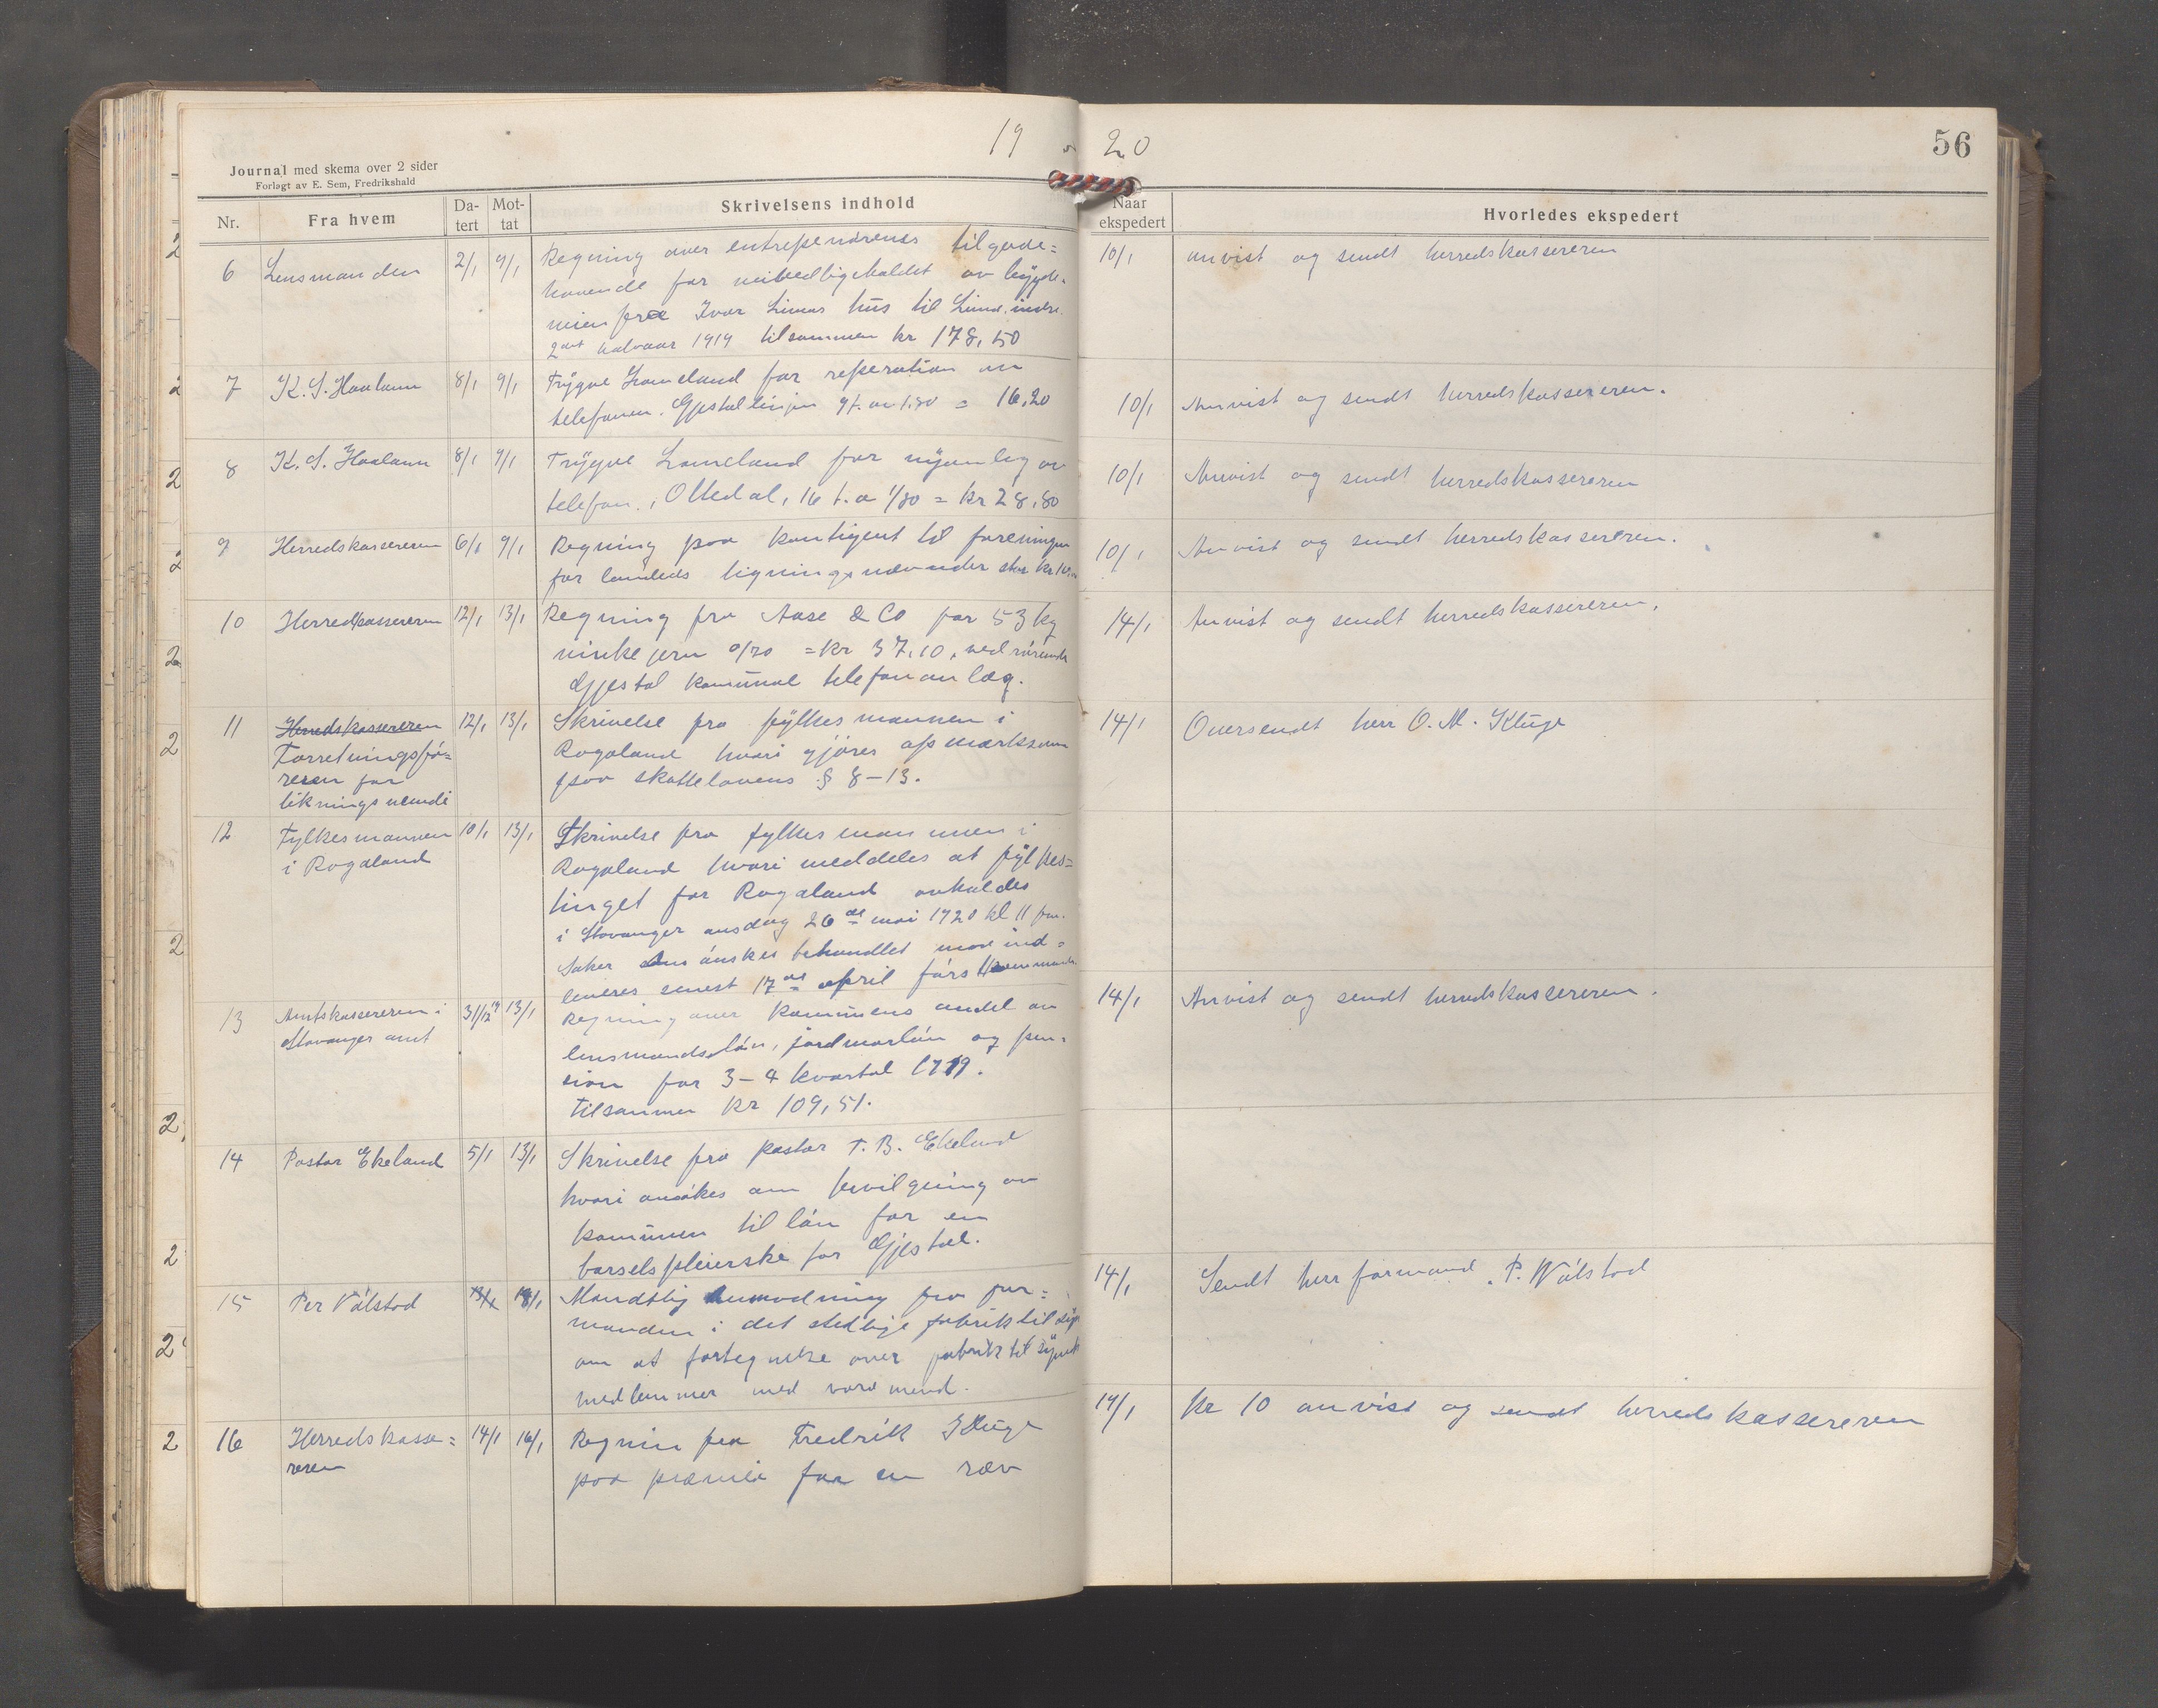 19 20
56
Journal med skema over 2 sider
Forlagt av E. Sem, Fredrikshald
Nr. Fra hvem Datert Mottat Skrivelsens indhold Naar ekspedert Hvorledes ekspedert
6 Lensmanden 2/1 9/1 Regning over entreprenörenes tilgode=
havende for veivedligeholdet av bygde-
veien fra Ivar Limas hus til Lima, indre
2det halvaar 1919 tilsammen kr 178,50
10/1 anvist og sendt herredskassereren
7 K. S. Haaland 8/1 9/1 Trygve Lomeland for reperation av
telefonen. Gjestallinjen 9 t. a 1.80 = 16,20
10/1 Anvist og sendt herredskassereren.
8 K. S. Haaland 8/1 9/1 Trygve Lomeland for nyanleg av
telefon, Oltedal, 16 t. a 1/80 = kr 28,80
10/1 Anvist og sendt herredskassereren
9 Herredskassereren 6/1 9/1 Regning paa kontigent til foreningen
for landets ligningsnævnder stor kr 10,
10/1 Anvist og sendt herredskassereren.
10 Herredskassereren 12/1 13/1 Regning fra Aase & Co for 53 kg
vinkejern 0/70 = kr 37,10, vedrörende
Gjestal kommunal telefonanlæg.
14/1 Anvist og sendt herredskassereren.
11 Herredskassereren 12/1 13/1 Skrivelse fra fylkesmannen i
Forretningsfö=
reren for
likningsnemdi
Rogaland hvori gjöres opmerksom
paa skattelovens § 8-13.
14/1 Oversendt herr O. M. Kluge
12 Fylkesmannen 10/1 13/1 Skrivelse fra fylkesmannen i
i Rogaland
Rogaland hvori meddeles at fylkes=
tinget for Rogaland avholdes
i Stavanger onsdag 26de mai 1920 kl 11 for.
Saker som önskes behandlet maa ind=
leveres senest 17de april förstkommende.
13 Amtskassereren i 31/12 19 13/1 Regning over kommunens andel av
Stavanger amt
lensmandslön, jordmorlön og pen-
sion for 3-4 kvartal 1919.
Tilsammen kr 109,51.
14/1 Anvist og sendt herredskassereren.
14 Pastor Ekeland 5/1 13/1 Skrivelse fra pastor T. B. Ekeland
hvori ansökes om bevilgning av
kommunen til lön for en
barselspleierske for Gjestal.
15 Per Válstad 13/1 Mundtlig anmodning fra for=
manden i det stedlige fabriktilsyn
om at fortegnelse over fabriktilsynets
medlemmer med varamend.
14/1 Sendt herr formand P. Wálstad
16 Herredskasse= 14/1 16/1 Regnin fra Fredrik Kluge
reren
paa præmie for en ræv
17/1 Kr 10 anvist og sendt herredskassereren